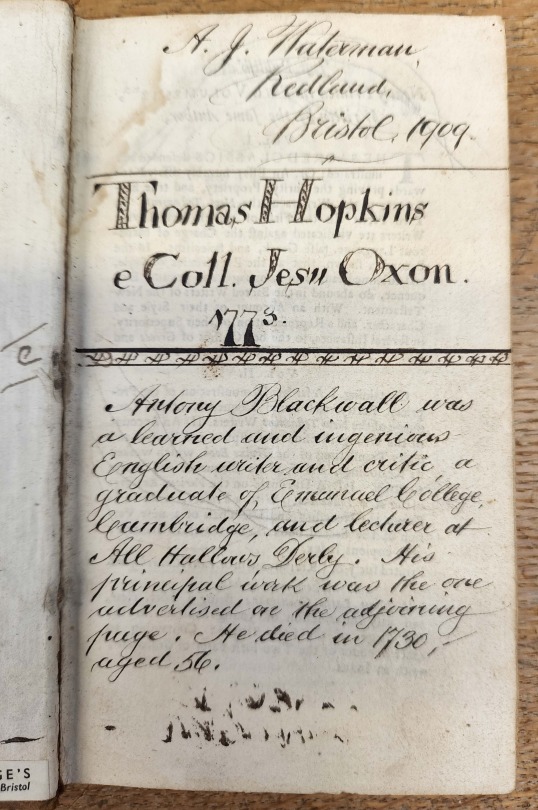 A. J. Waterman,
Redland,
Bristol, 1909.
Thomas Hopkins
e Coll. Jesu Oxon.
1773.
Antony Blackwall was
a learned and ingenious
English writer and critic, a
graduate of Emanuel College,
Cambridge, and lecturer at
All Hallows Derby. His
principal work was the one
advertised on the adjoining
page. He died in 1730,
aged 56.
GE'S
Bristol